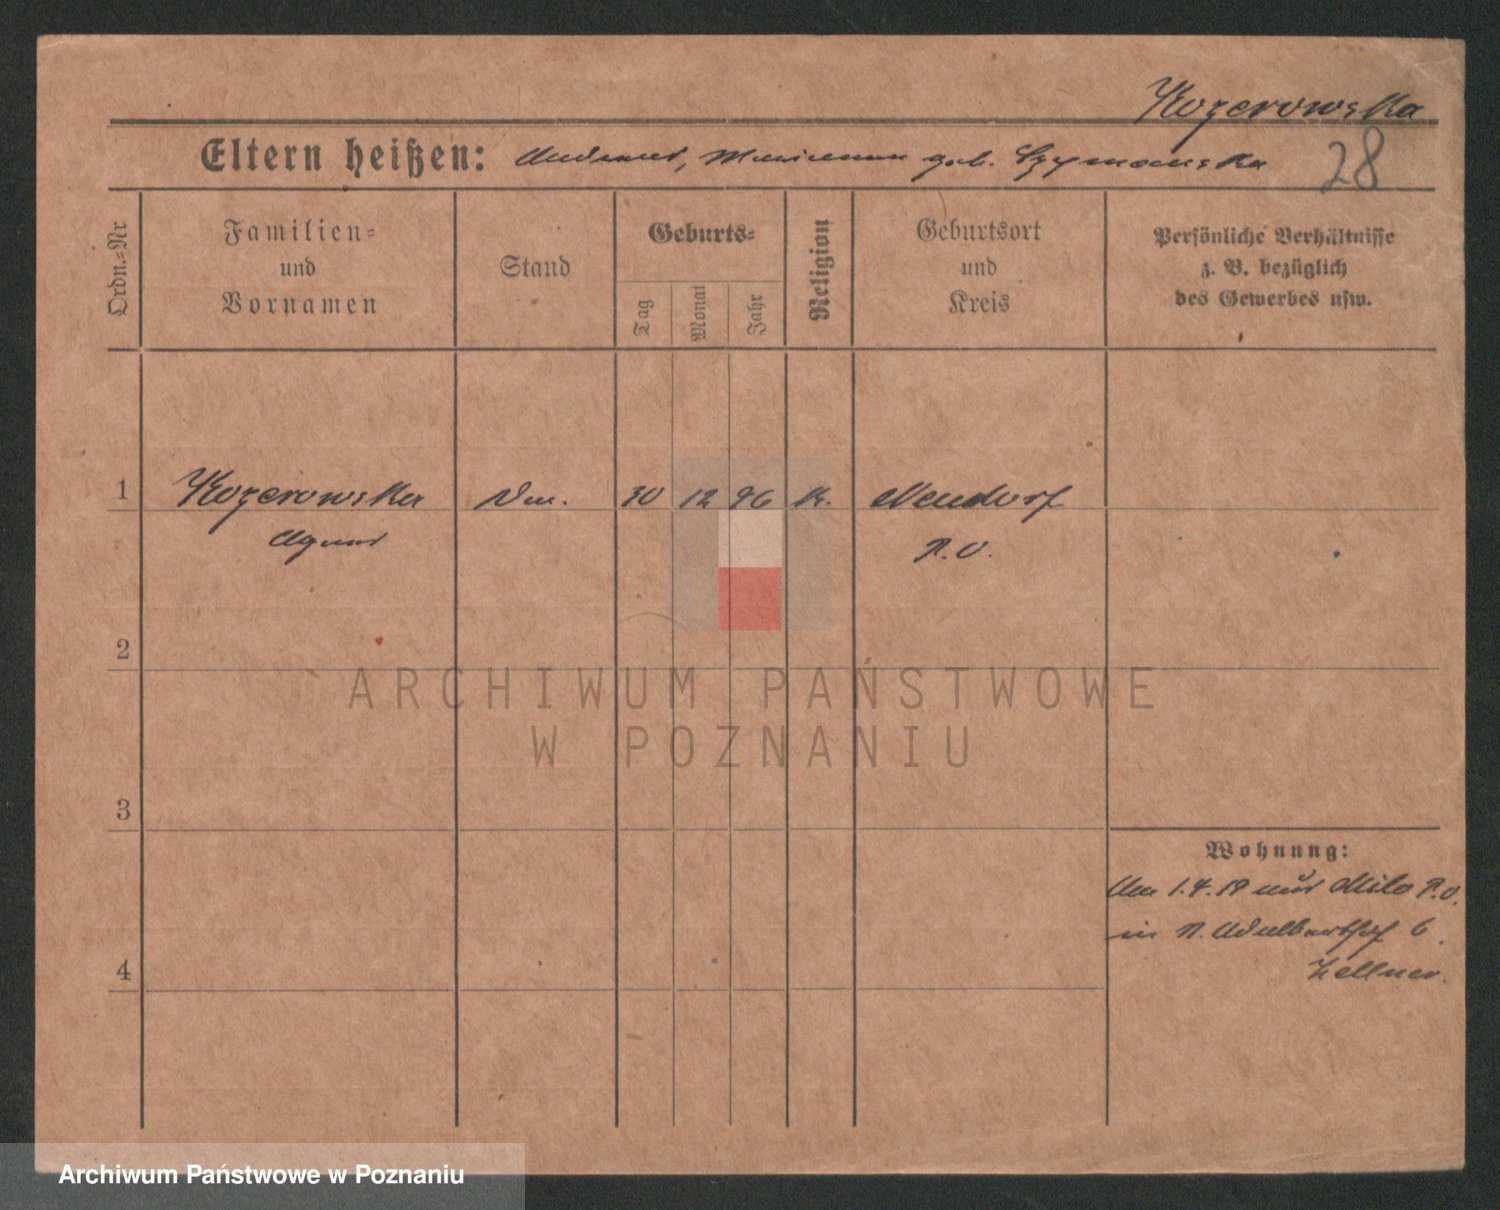 Kozerowska
Eltern heißen: Andreas, Marianna geb. Szymanska
28
Ordn.-Nr
Familien-
und
Vornamen
Stand
Geburts-
Tag
Monat
Jahr
Religion
Geburtsort
und
Kreis
Persönliche Verhältnisse
z. B. bezüglich
des Gewerbes usw.
1 Kozerowska 30 12 96 K. Neudorf
Agnes P.O.
2
3
4
Wohnung:
Am 1.4.19 aus Milo P.O.
in P. 6
Zellner.
ARCHIWUM PAŃSTWOWE
W POZNANIU
Archiwum Państwowe w Poznaniu